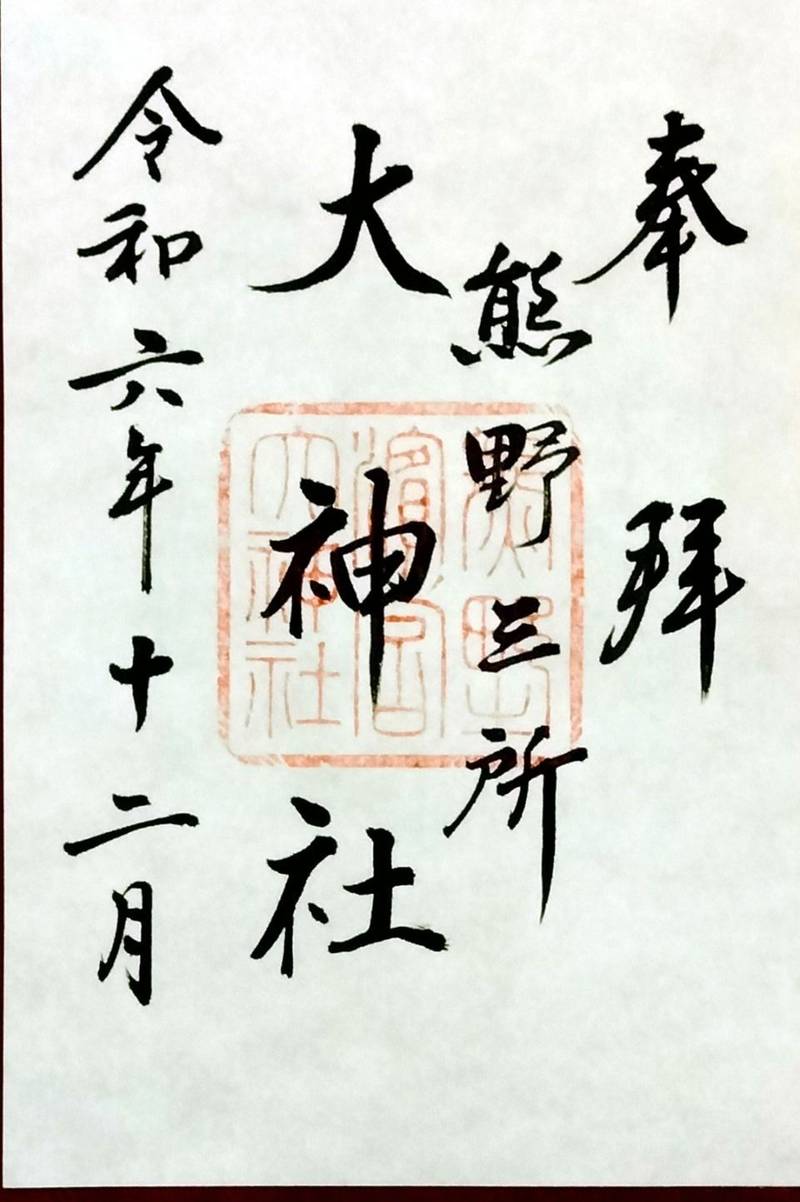 奉拜
熊野三所
大神社
令和六年十二月
熊野
濱宮
大神社